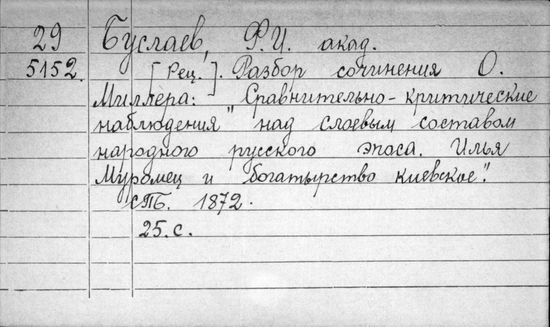 29 Буслаев, Ф.И. акад.
5152. [Рец.]. Разбор сочинения О.
Миллера: "Сравнительно-критические
наблюдения" над слоевым составом
народного русского эпоса. Илья
Муромец и богатырство киевское".
СПБ. 1872.
25.с.